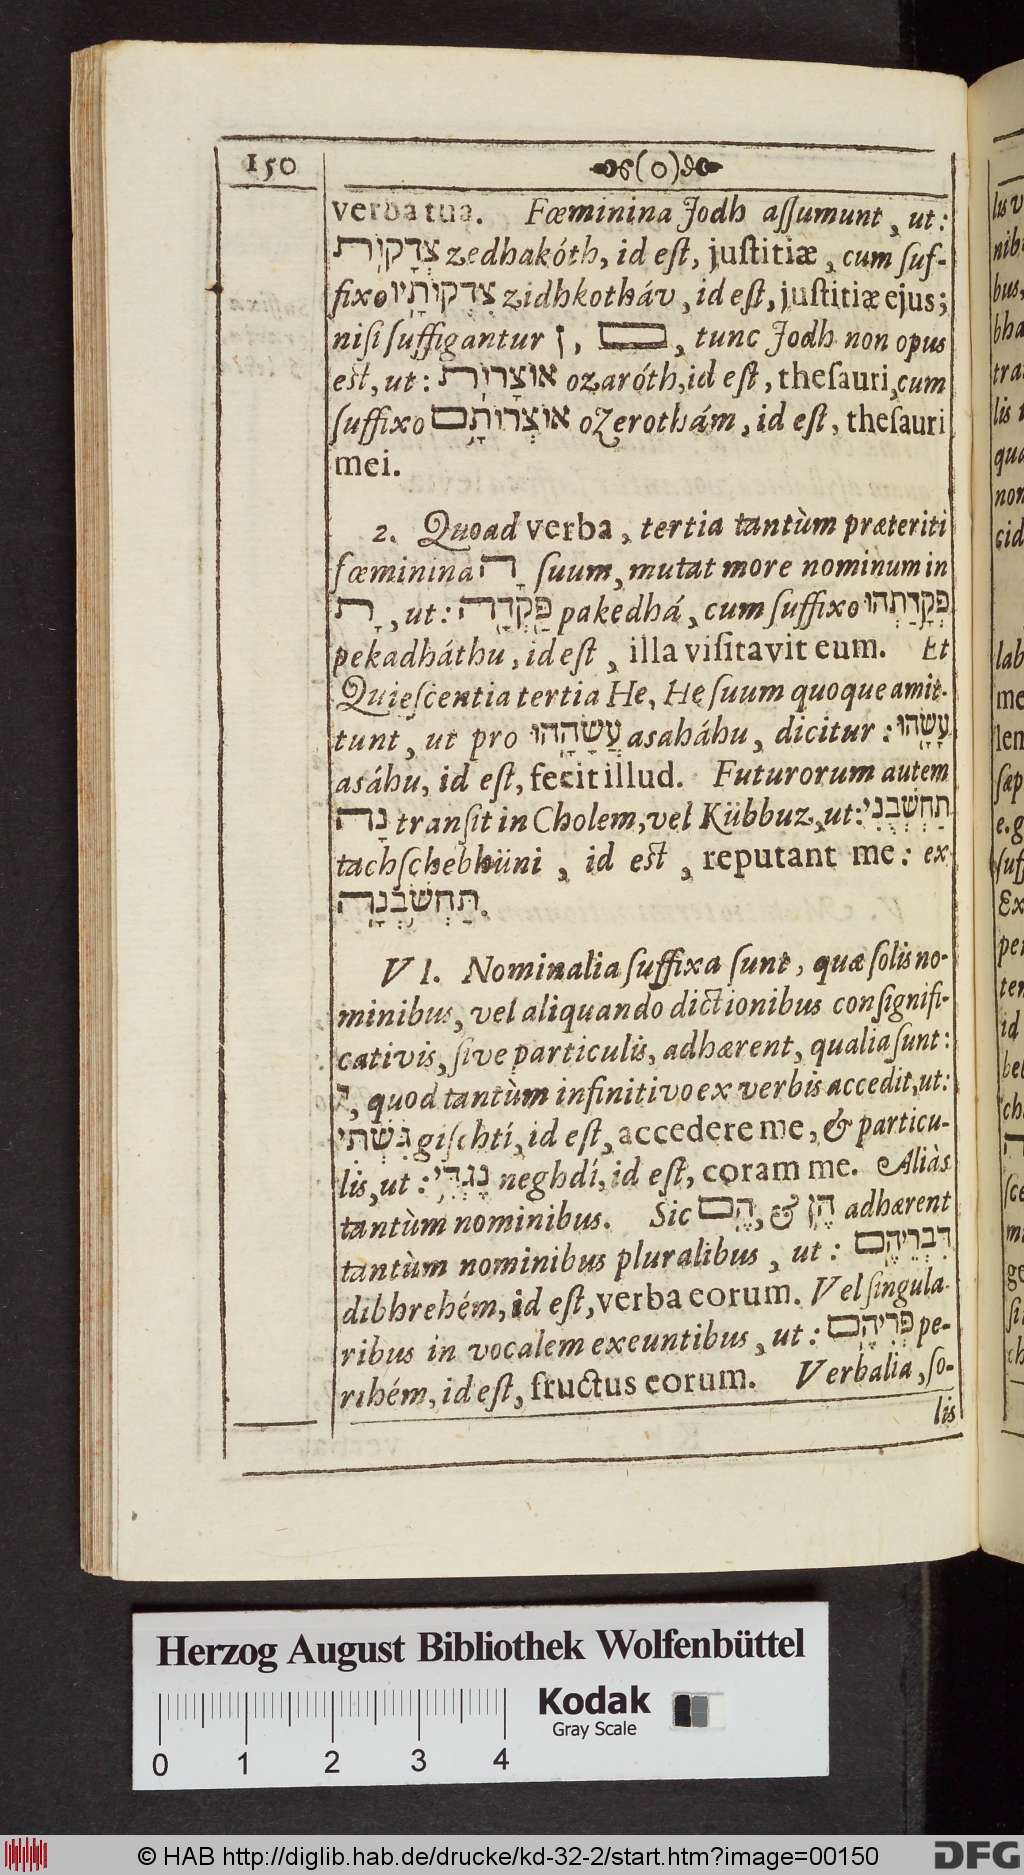 150 (0)
verba tua. Fœminina Jodh aſſumunt, ut:
צְדָקוֹת zedhakóth, id eſt, juſtitiæ, cum ſuf-
fixo צִדְקוֹתָיו zidhkotháv, id eſt, juſtitiæ ejus;
niſi ſuffigantur ן, ם, tunc Jodh non opus
est, ut: אוֹצָרוֹת ozaróth, id eſt, theſauri, cum
ſuffixo אוֹצְרוֹתָם ozerothám, id eſt, theſauri
mei.
2. Quoad verba, tertia tantùm præteriti
fœminina הָ ſuum, mutat more nominum in
תָ, ut: פָּקְדָה pakedhá, cum ſuffixo פְּקָדַתְהוּ
pekadháthu, id eſt, illa viſitavit eum. Et
Quieſcentia tertia He, He ſuum quoque amit-
tunt, ut pro עֲשָׂהָהוּ asaháhu, dicitur: עָשָׂהוּ
asáhu, id eſt, fecit illud. Futurorum autem
נָה tranſit in Cholem, vel Kübbuz, ut: תַחְשְׁבֻנִי
tachſchebhüni, id est, reputant me: ex
תַּחְשֹׁבְנָה.
VI. Nominalia ſuffixa ſunt, quæ ſolis no-
minibus, vel aliquando dictionibus conſignifi-
cativis, ſive particulis, adhærent, qualia ſunt:
י, quod tantùm infinitivo ex verbis accedit, ut:
גִּשְׁתִּי giſchtí, id eſt, accedere me, & particu-
lis, ut: נֶגְדִּי neghdí, id eſt, coram me. Aliàs
tantùm nominibus. Sic הֶם, & הֶן adhærent
tantùm nominibus pluralibus, ut: דִּבְרֵיהֶם
dibhrehém, id eſt, verba eorum. Vel ſingula-
ribus in vocalem exeuntibus, ut: פְּרִיהֶם pe-
rihém, id eſt, fructus eorum. Verbalia, ſo-
lis
Herzog August Bibliothek Wolfenbüttel
0 1 2 3 4
Kodak
Gray Scale
© HAB http://diglib.hab.de/drucke/kd-32-2/start.htm?image=00150
DFG